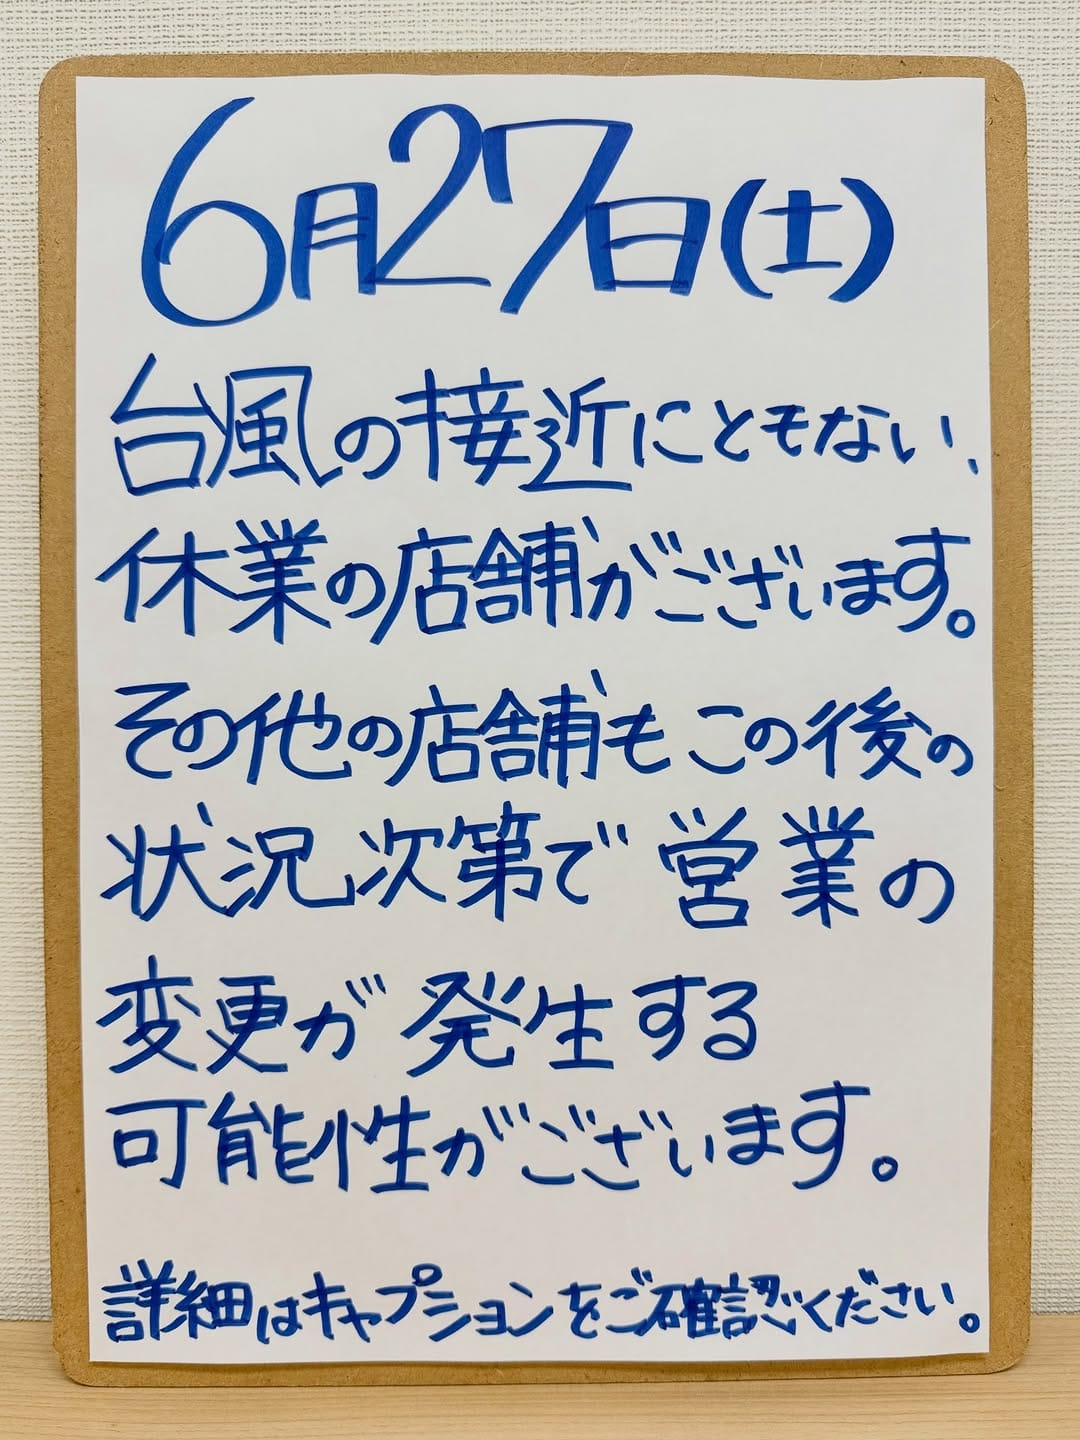 6月27日(土)
台風の接近にともない、
休業の店舗がございます。
その他の店舗もこの後の
状況次第で営業の
変更が発生する
可能性がございます。
詳細はキャプションをご確認ください。